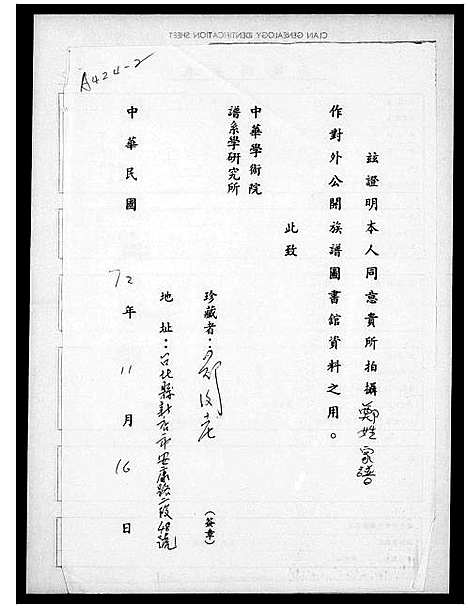 CLAN GENEALOGY IDENTIFICATION SHEET
A424-2
茲證明本人同意貴所拍攝鄭姓家譜
作對外公開族譜圖書館資料之用。
此致
中華學術院
譜系學研究所
珍藏者：鄭
(簽章)
地址：台北縣新店市安康路二段48號
中華民國72年11月16日